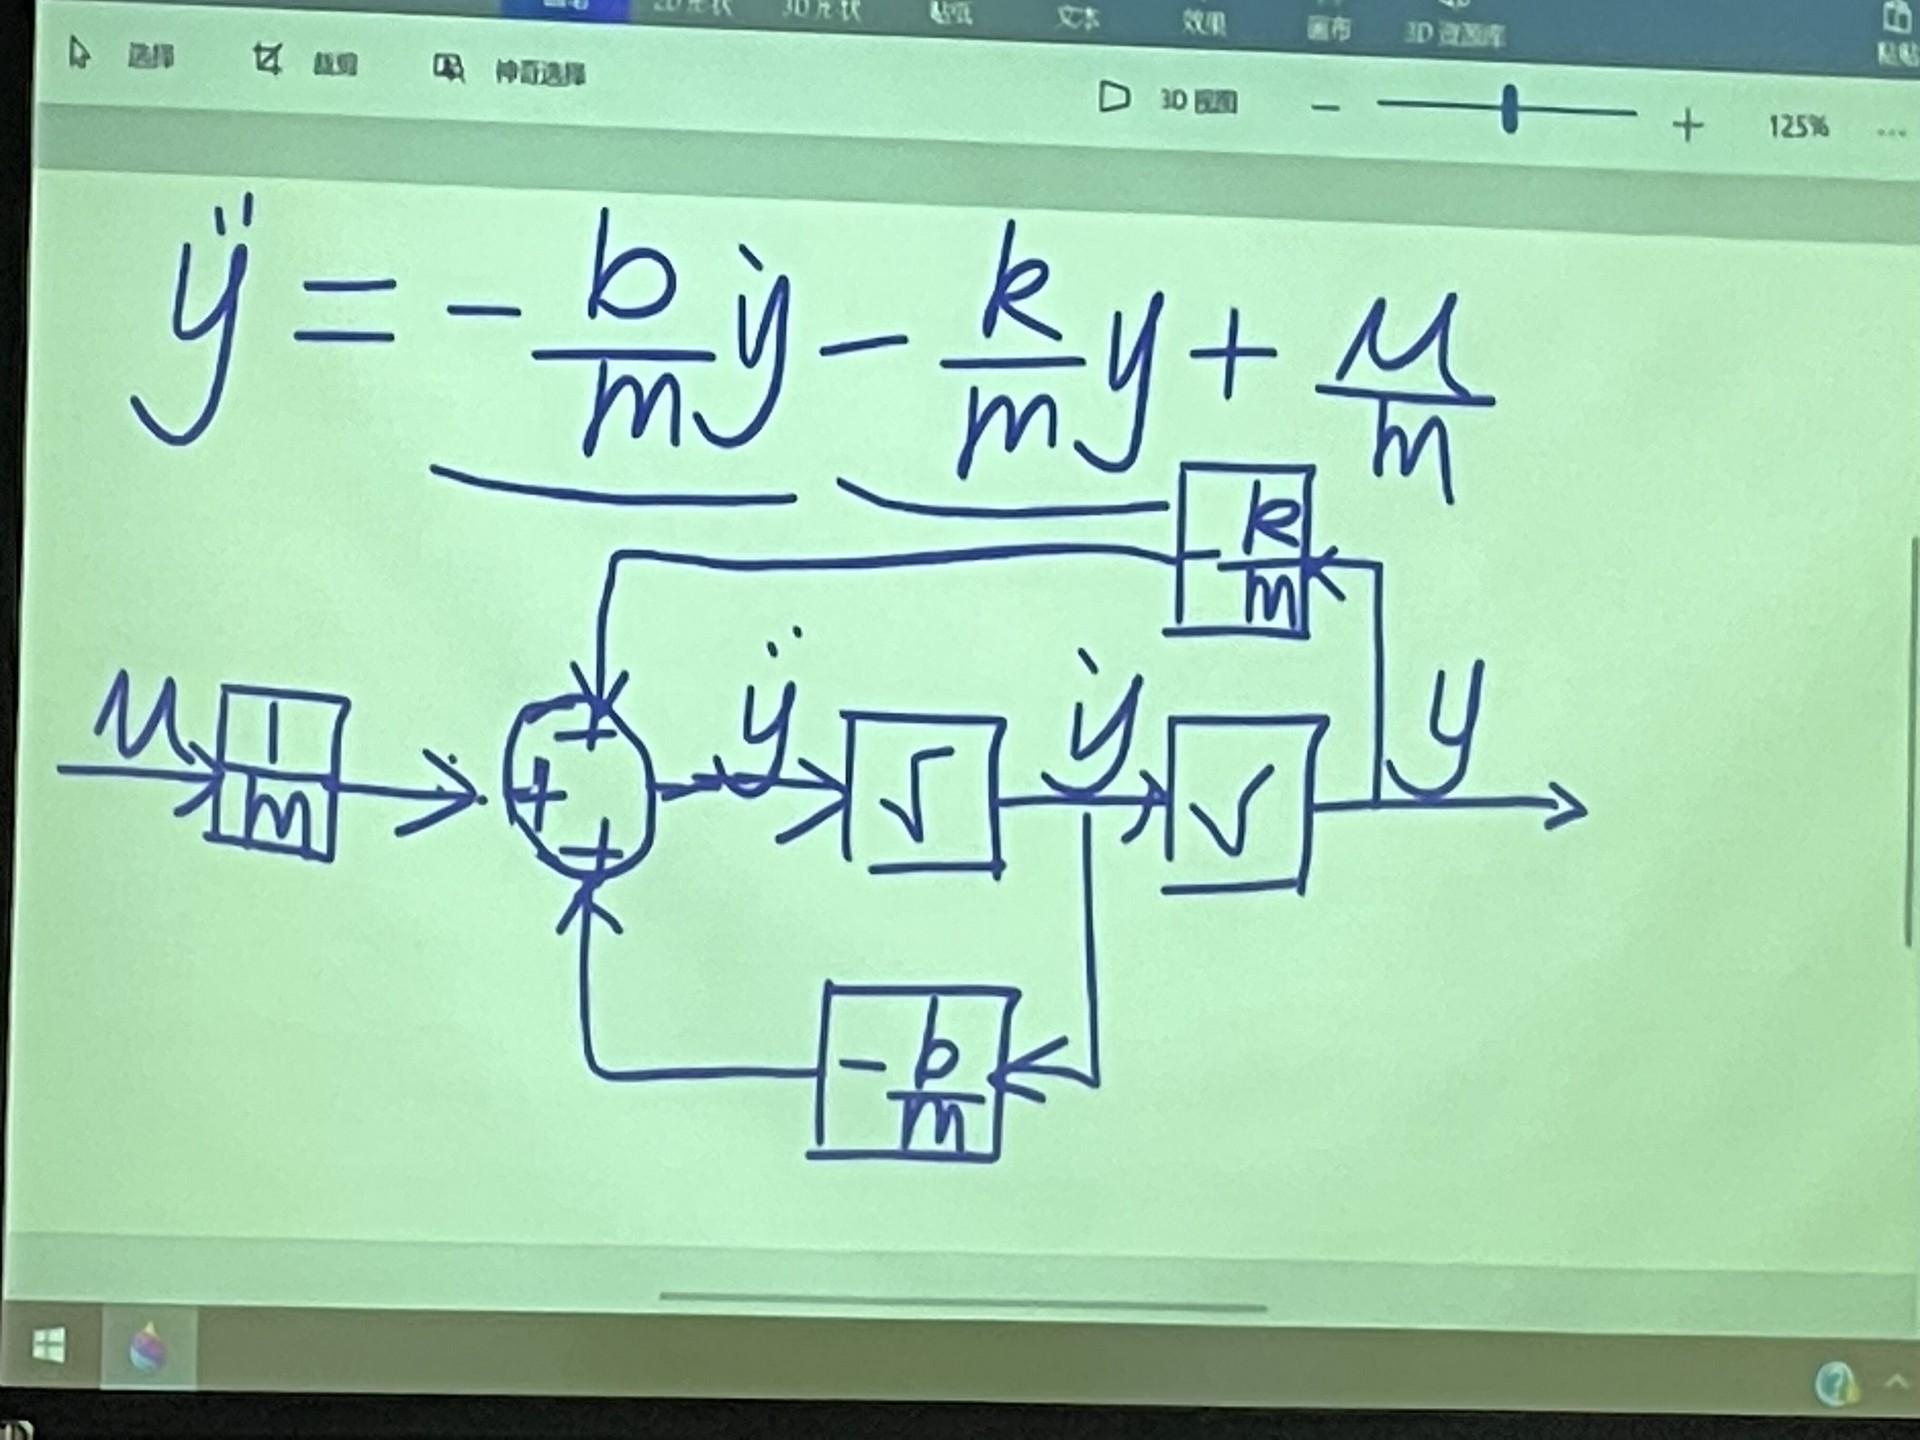 2D 形状 3D 形状 贴纸 文本 效果 画布 3D 资源库
粘贴
选择 裁剪 神奇选择 3D 视图 − + 125% ...
ÿ = - b/m ẏ - k/m y + u/m
- k/m
u 1/m + + + ÿ ∫ ẏ ∫ y
- b/m